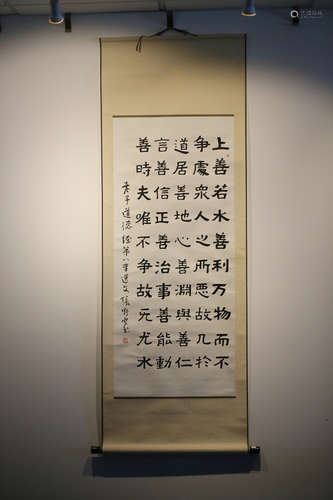 上善若水善利万物而不
争處衆人之所惡故几於
道居善地心善淵與善仁
言善信正善治事善能動
善時夫唯不争故无尤水
老子道德經第八章選文張